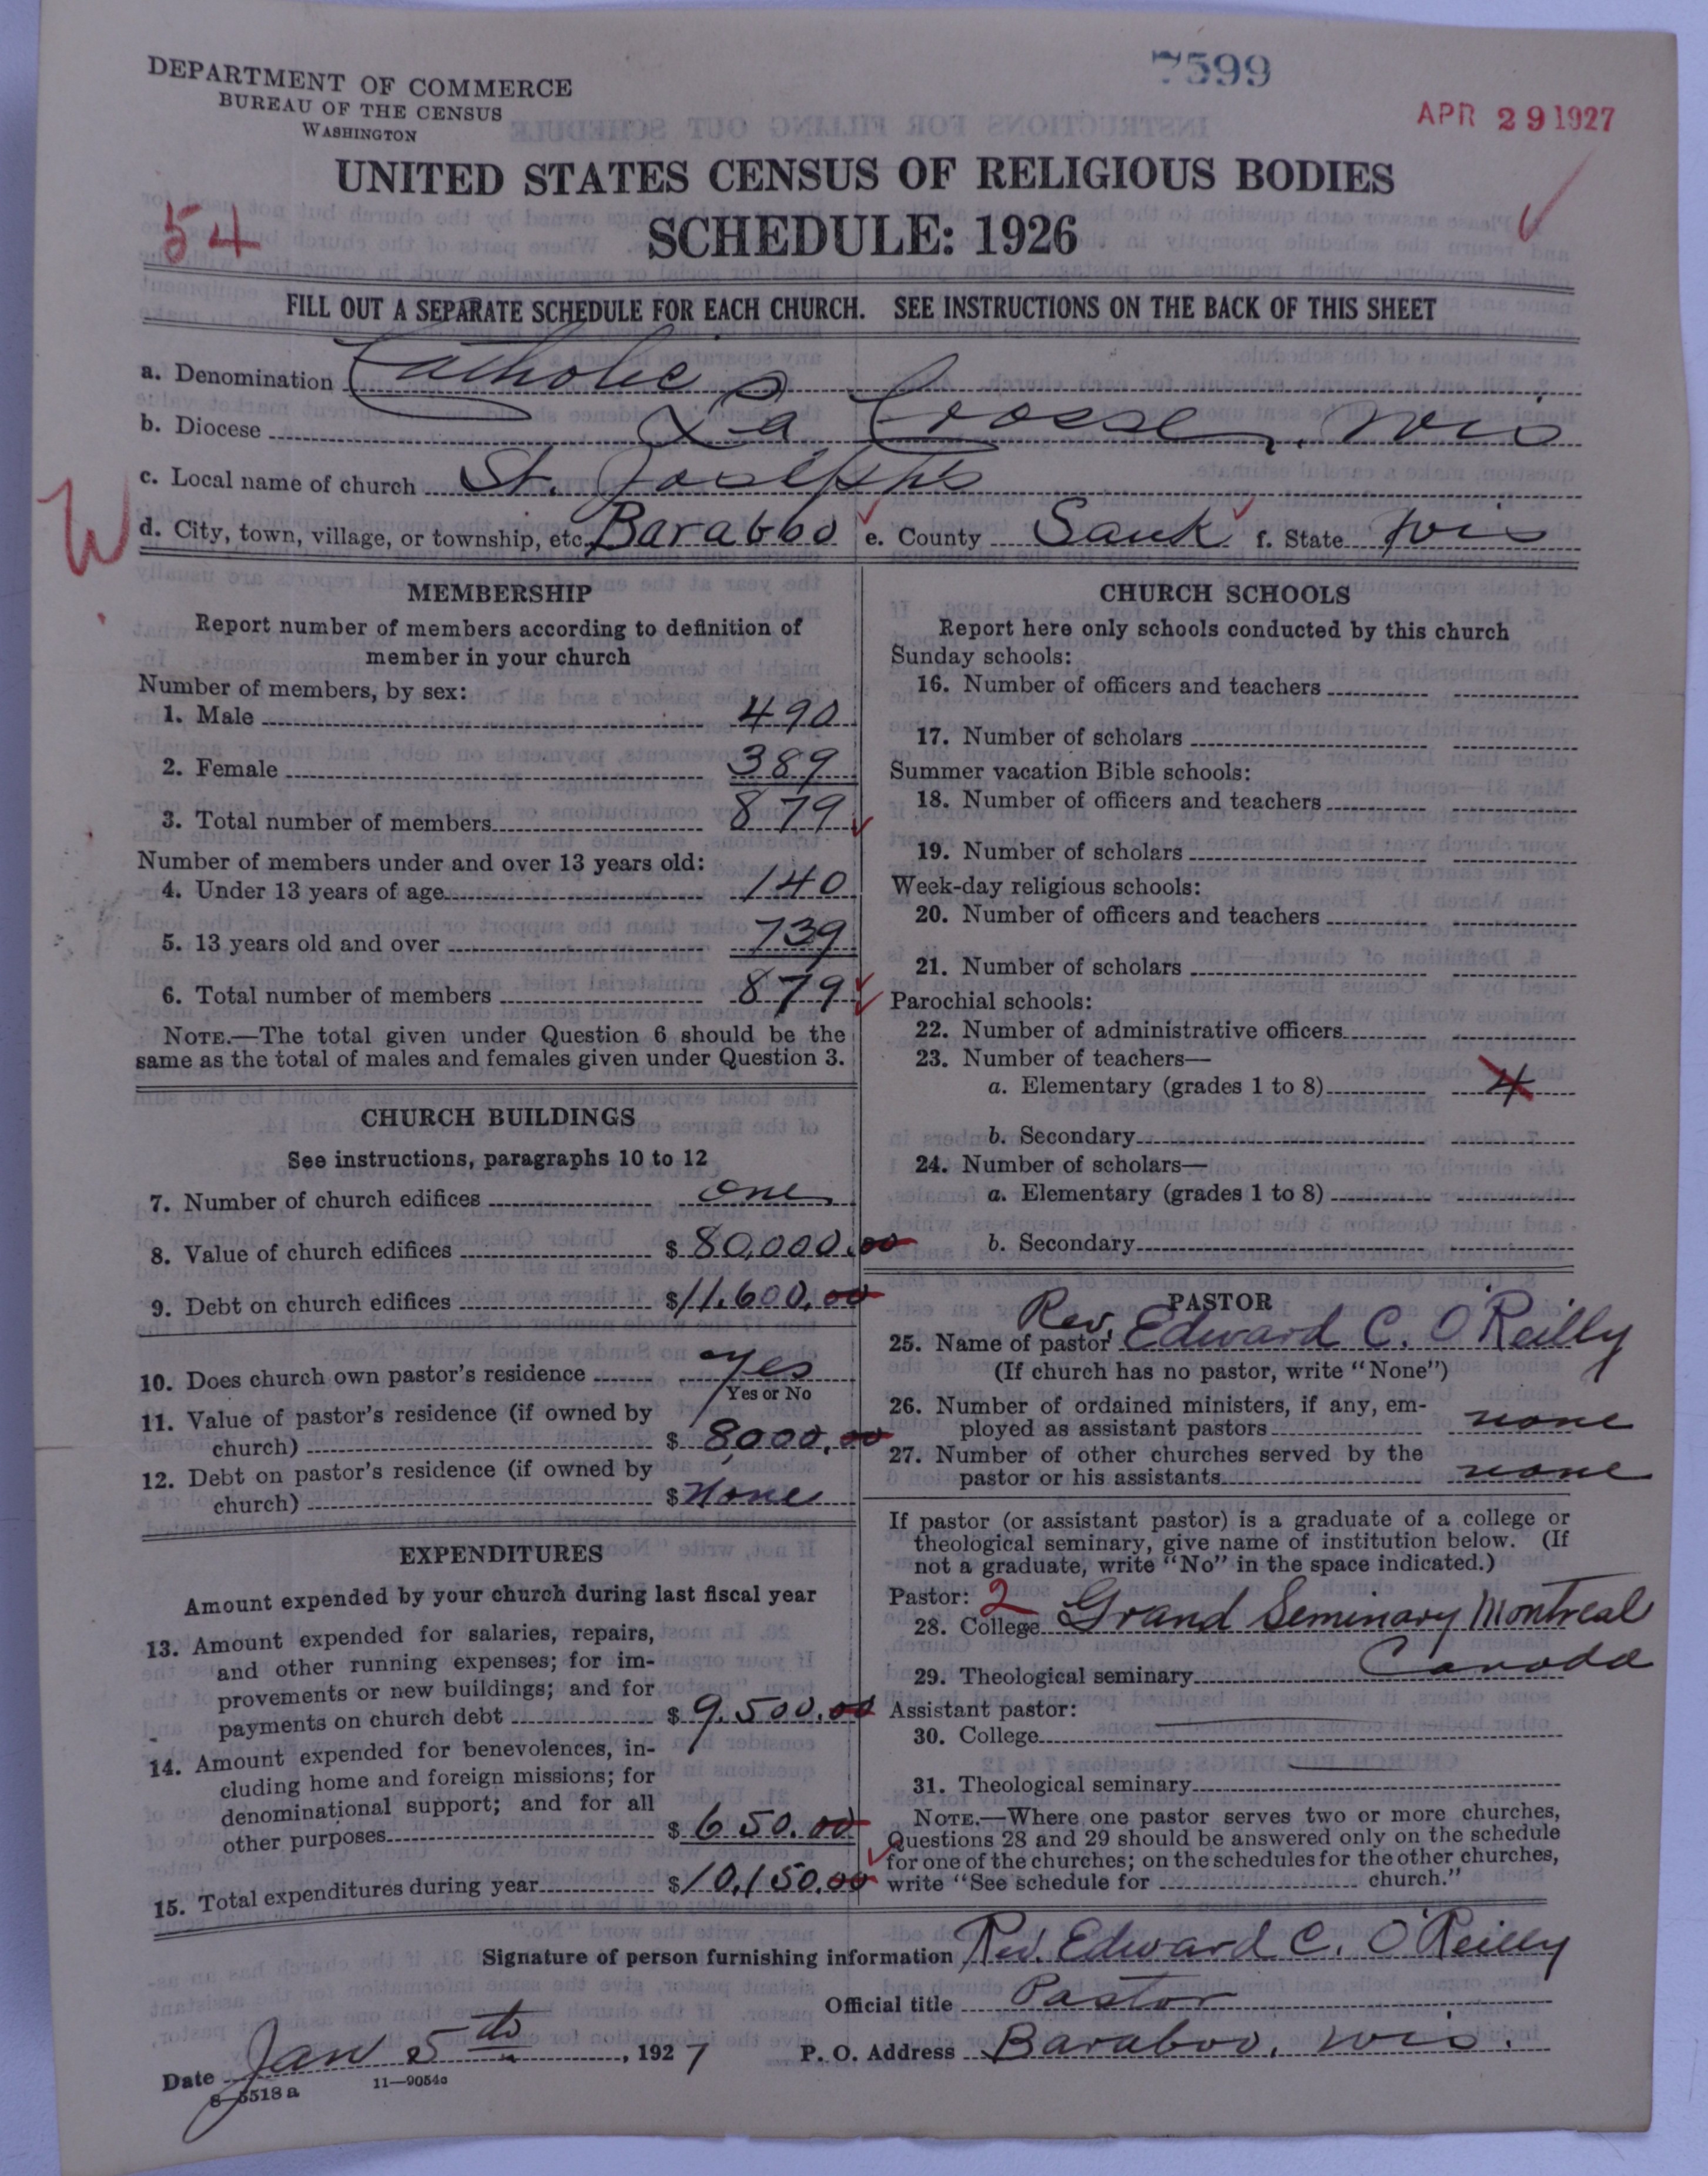 DEPARTMENT OF COMMERCE
BUREAU OF THE CENSUS
WASHINGTON
7599
APR 29 1927
UNITED STATES CENSUS OF RELIGIOUS BODIES
54
SCHEDULE: 1926
FILL OUT A SEPARATE SCHEDULE FOR EACH CHURCH. SEE INSTRUCTIONS ON THE BACK OF THIS SHEET
a. Denomination Catholic
b. Diocese La Crosse, Wis
c. Local name of church St. Joseph's
W
d. City, town, village, or township, etc. Baraboo e. County Sauk f. State Wis
MEMBERSHIP
Report number of members according to definition of
member in your church
Number of members, by sex:
1. Male 490
2. Female 389
3. Total number of members 879
Number of members under and over 13 years old:
4. Under 13 years of age 140
5. 13 years old and over 739
6. Total number of members 879
NOTE.—The total given under Question 6 should be the
same as the total of males and females given under Question 3.
CHURCH BUILDINGS
See instructions, paragraphs 10 to 12
7. Number of church edifices one
8. Value of church edifices $ 80,000.00
9. Debt on church edifices $ 11,600.00
10. Does church own pastor's residence yes
Yes or No
11. Value of pastor's residence (if owned by
church) $ 8,000.00
12. Debt on pastor's residence (if owned by
church) $ None
EXPENDITURES
Amount expended by your church during last fiscal year
13. Amount expended for salaries, repairs,
and other running expenses; for im-
provements or new buildings; and for
payments on church debt $ 9,500.00
14. Amount expended for benevolences, in-
cluding home and foreign missions; for
denominational support; and for all
other purposes $ 650.00
15. Total expenditures during year $ 10,150.00
CHURCH SCHOOLS
Report here only schools conducted by this church
Sunday schools:
16. Number of officers and teachers
17. Number of scholars
Summer vacation Bible schools:
18. Number of officers and teachers
19. Number of scholars
Week-day religious schools:
20. Number of officers and teachers
21. Number of scholars
Parochial schools:
22. Number of administrative officers
23. Number of teachers—
a. Elementary (grades 1 to 8) 4
b. Secondary
24. Number of scholars—
a. Elementary (grades 1 to 8)
b. Secondary
PASTOR
25. Name of pastor Rev. Edward C. O'Reilly
(If church has no pastor, write "None")
26. Number of ordained ministers, if any, em-
ployed as assistant pastors none
27. Number of other churches served by the
pastor or his assistants none
If pastor (or assistant pastor) is a graduate of a college or
theological seminary, give name of institution below. (If
not a graduate, write "No" in the space indicated.)
Pastor: 2
28. College Grand Seminary Montreal
29. Theological seminary Canada
Assistant pastor:
30. College
31. Theological seminary
NOTE.—Where one pastor serves two or more churches,
Questions 28 and 29 should be answered only on the schedule
for one of the churches; on the schedules for the other churches,
write "See schedule for church."
Signature of person furnishing information Rev. Edward C. O'Reilly
Official title Pastor
Date Jan 5th, 1927 P. O. Address Baraboo, Wis.
8—5518 a 11—9054a